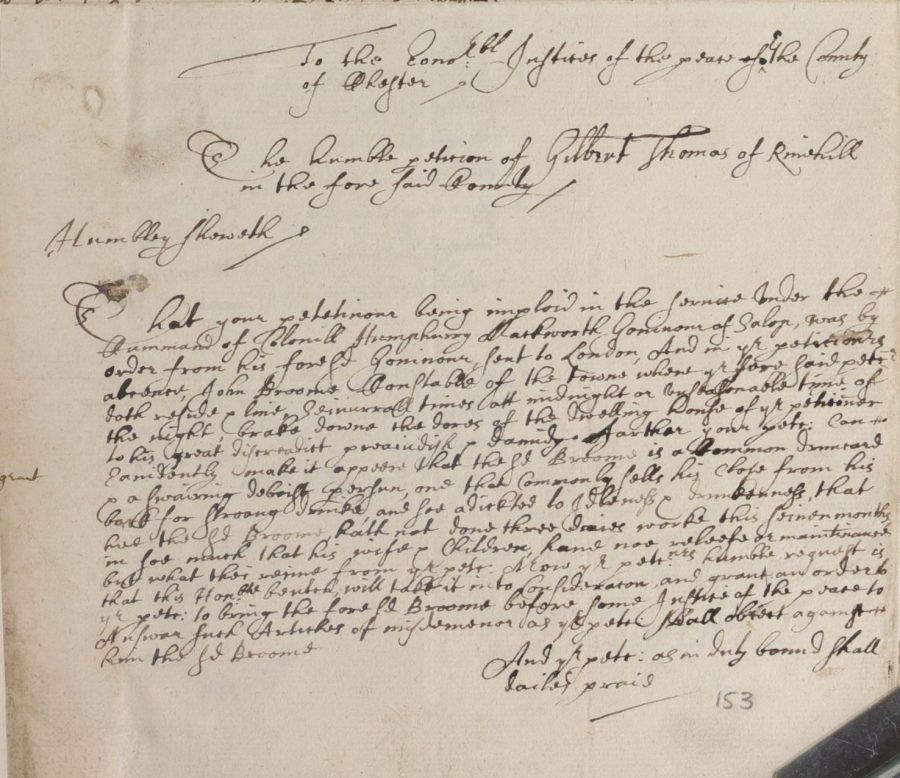 To the Honorbl Justices of the peace of the County
of Chester
The humble peticion of Gilbert Thomas of Rinehill
in the fore said County
Humbley sheweth
That your petetinour being imploid in the service Under the
Cummand of Colonill Humphurry Mackworth Governour of Salop, was by
order from his foresd Governour, sent to London, And in yr peticioners
absence, John Broome Constable of the Towne where yr fore said petr
doth reside & live, Seiuerall times att midnight or Unseasonable time of
the night, brake downe the dores of the dwelling house of yr peticioner
to his great discreadict preaindise & damidg. Farther your petr: Can
Euidently make it appeere that the sd Broome is a Common druncard
& a swairing deboist person, one that Commonly sells his Close from his
back for stroang drinke and soe adickted to Idleness & drunkenness, that
hee the sd Broome, hath not done three daies worke this seiven months
in soe much that his wife & Children, have noe releefe or maintinance
but what thei reseive from yr petr: Now yr petrs: humble request is
that this Honble bentch, will take it into Consideracon, and grant an order to
yr petr: to bring the foresd Broome before some Justice of the peace to
Answar such Articles of misdemenor as yr petr: shall obiect against
him the sd Broome
grant
And yr petr: as in duty bound shall
dailed praie
153